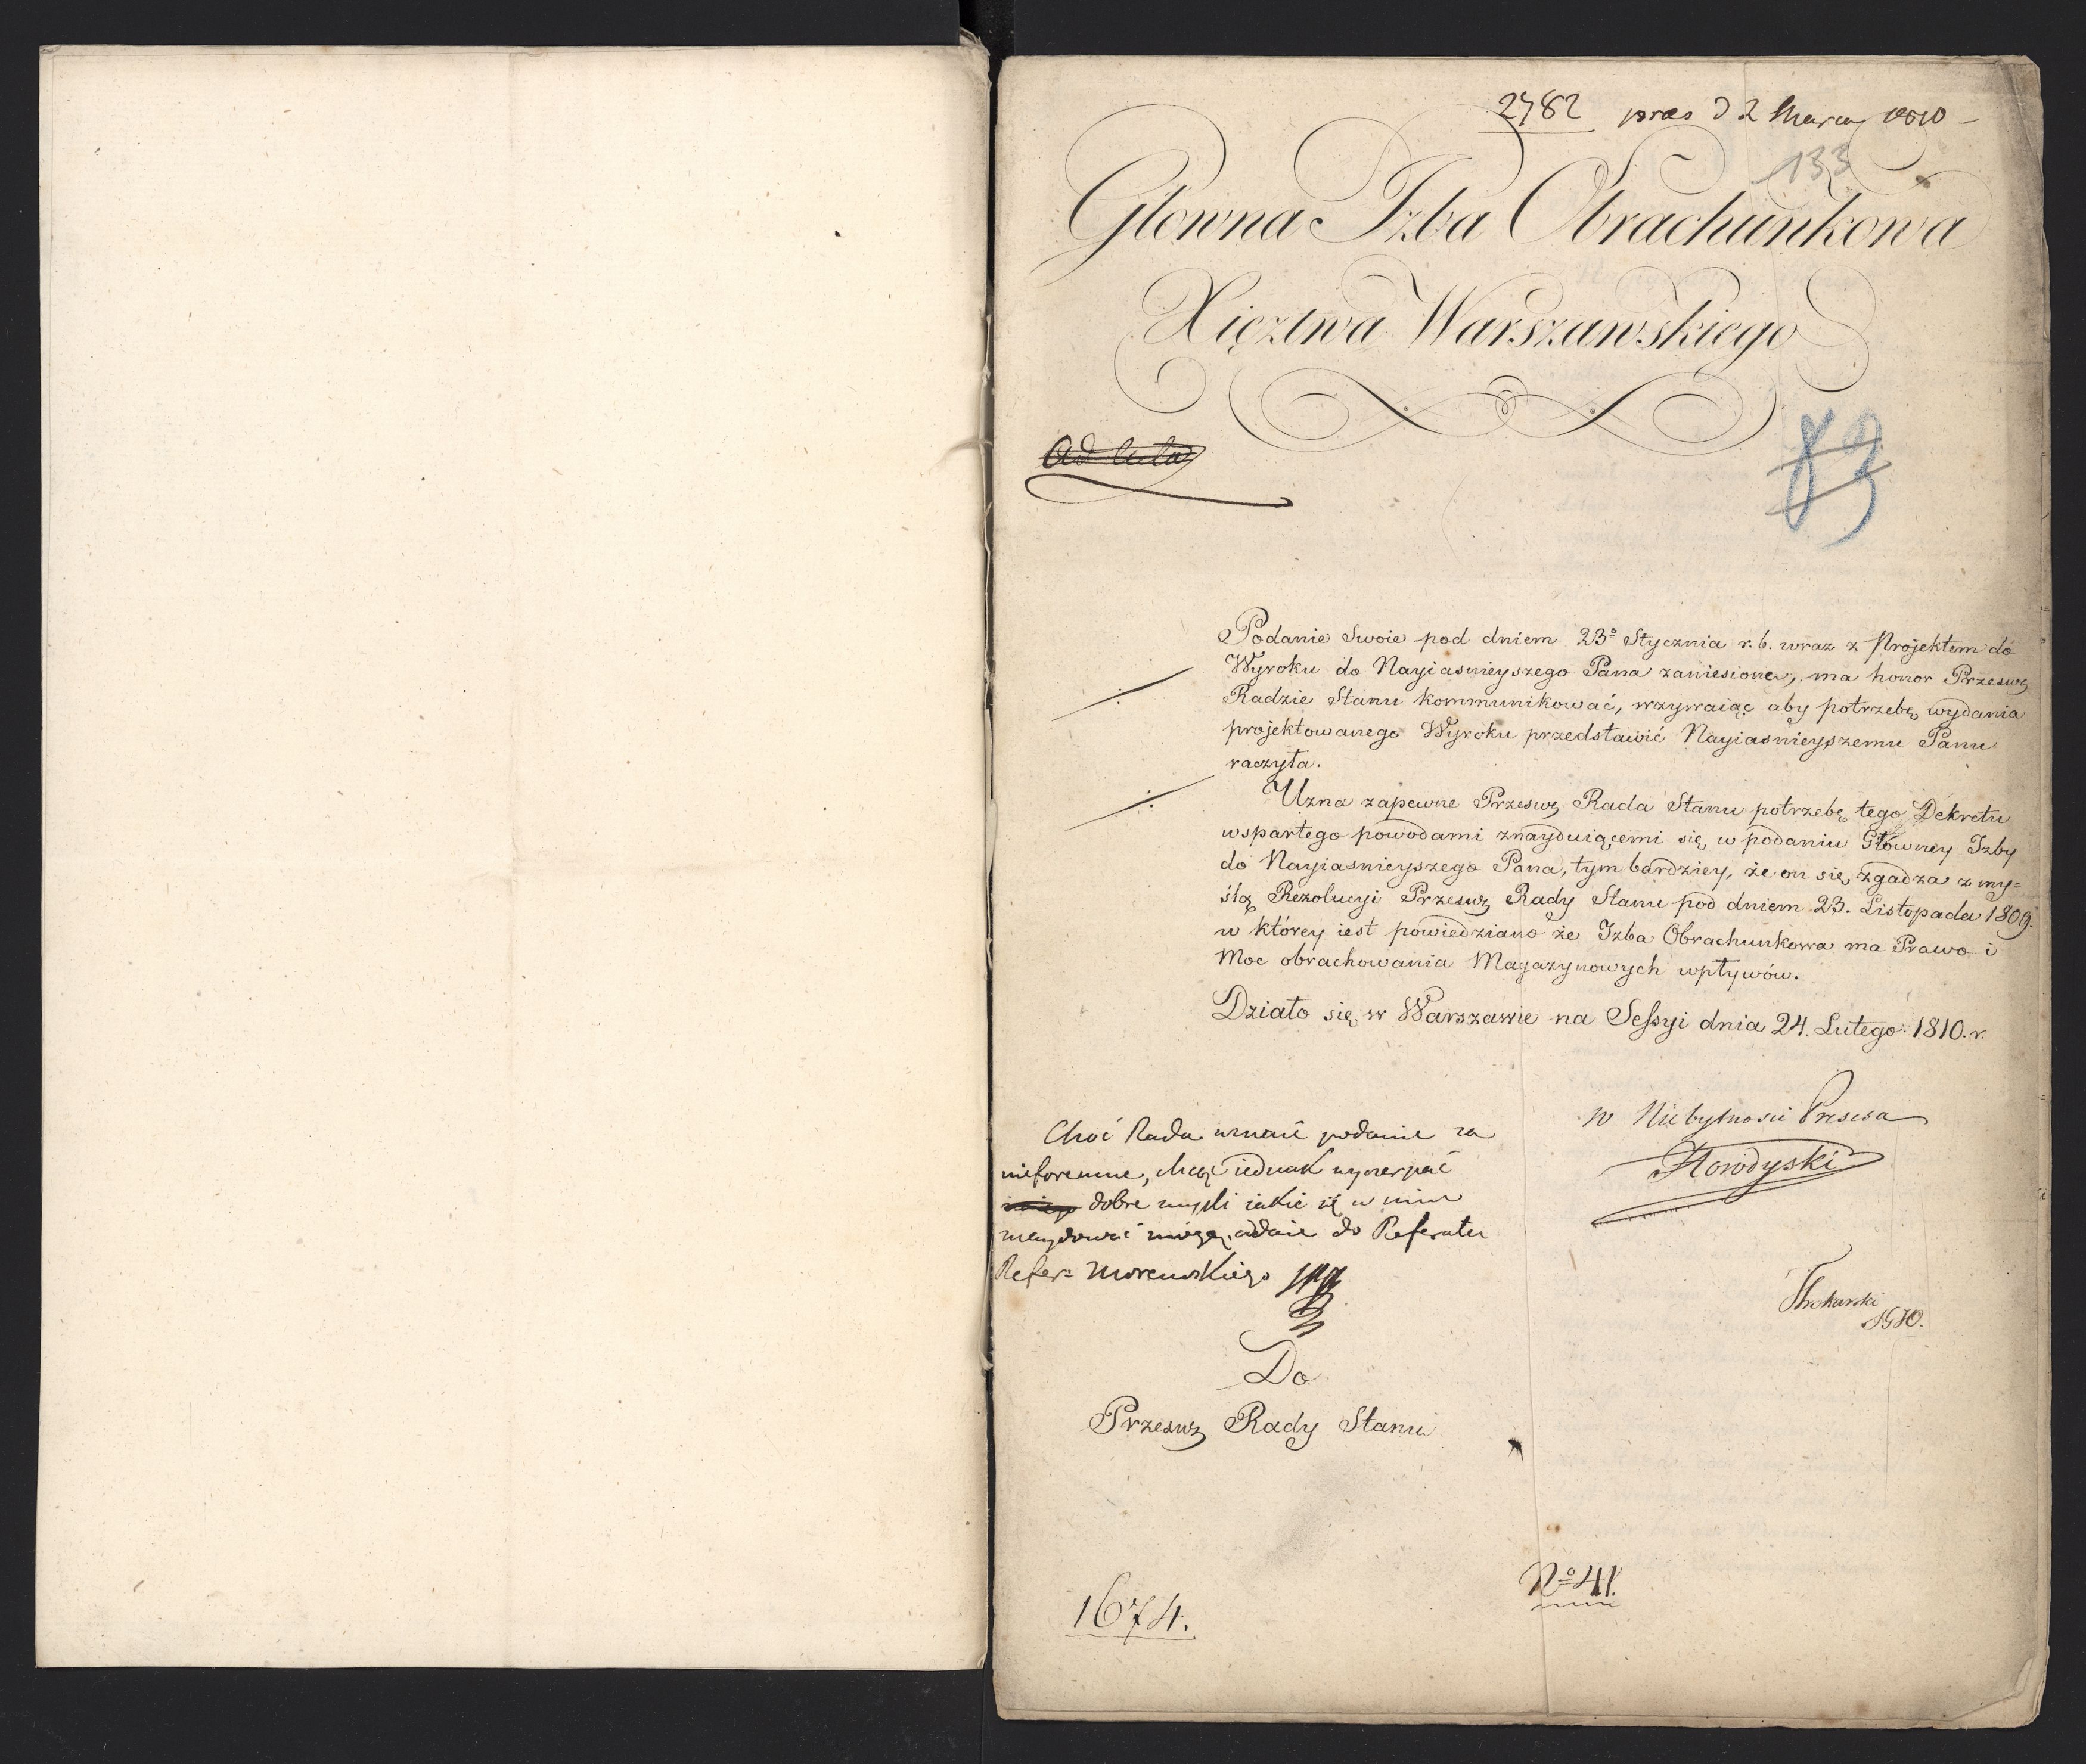 2782 præs d 2 Marca 1810
133
Głowna Izba Obrachunkowa
Xięztwa Warszawskiego
ad acta
83
Podanie Swoie pod dniem 23º Stycznia r. b. wraz z Projektem do
Wyroku do Nayiasnieyszego Pana zaniesione, ma honor Przesw:
Radzie Stanu kommunikować, wzywaiąc aby potrzebę wydania
projektowanego Wyroku przedstawić Nayiasnieyszemu Panu
raczyła.
Uzna zapewne Przesw: Rada Stanu potrzebę tego Dekretu
wspartego powodami znayduiącemi się w podaniu Główney Izby
do Nayiasnieyszego Pana, tym bardziey, że on się zgadza z my=
ślą Rezolucyi Przesw: Rady Stanu pod dniem 23. Listopada 1809.
w którey iest powiedziano że Izba Obrachunkowa ma Prawo i
Moc obrachowania Magazynowych wpływów.
Działo się w Warszawie na Sessyi dnia 24. Lutego 1810. r.
w Niebytnosci Prezesa
Choć Rada uznaie podanie za
nieforemne, chcąc iednak wyczerpać
dobre mysli iakie się w nim
znaydować mogą, oddaie do Referatu
Refer:
Do
Przesw: Rady Stanu
Nº 41.
1674.